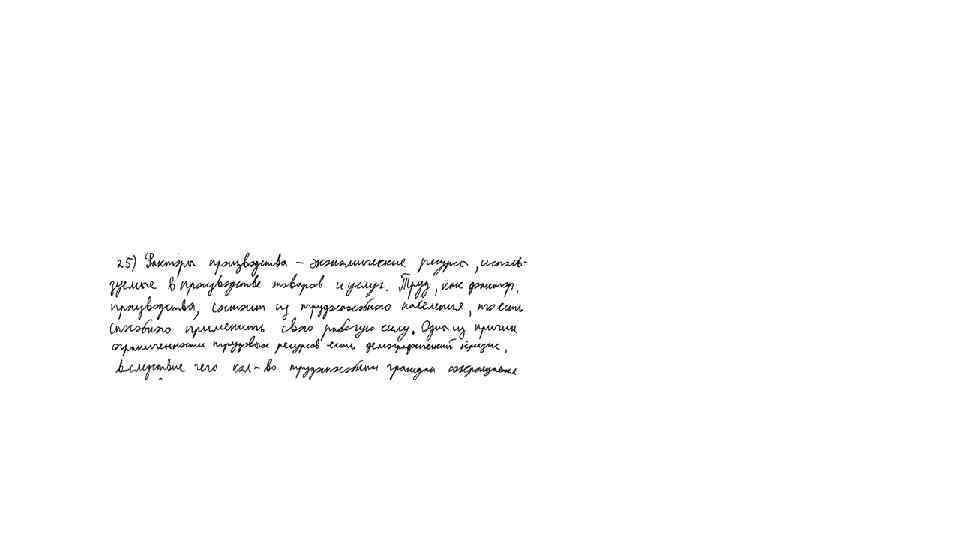 25) Факторы производства – экономические ресурсы, исполь-
зуемые в производстве товаров и услуг. Труд, как фактор
производства, состоит из трудоспособного населения, то есть
способного применить свою рабочую силу. Одна из причин
ограниченности трудовых ресурсов есть демографический кризис,
вследствие чего кол-во трудоспособных граждан